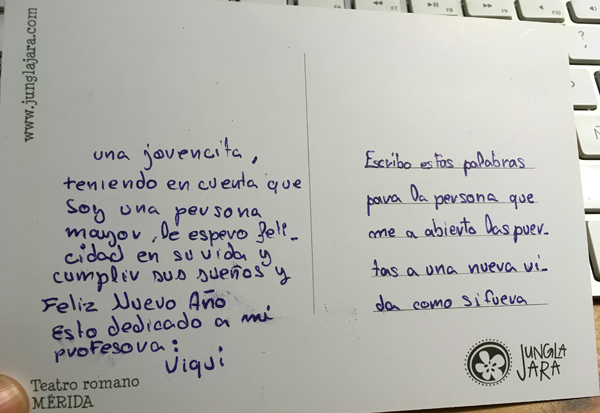 Escribo estas palabras
para la persona que
me a abierto las puer-
tas a una nueva vi-
da como si fuera
una jovencita,
teniendo en cuenta que
soy una persona
mayor, le espero feli-
cidad en su vida y
cumplir sus sueños y
Feliz Nuevo Año
Esto dedicado a mi
profesora:
Viqui
www.junglajara.com
Teatro romano
MÉRIDA
JUNGLA
JARA